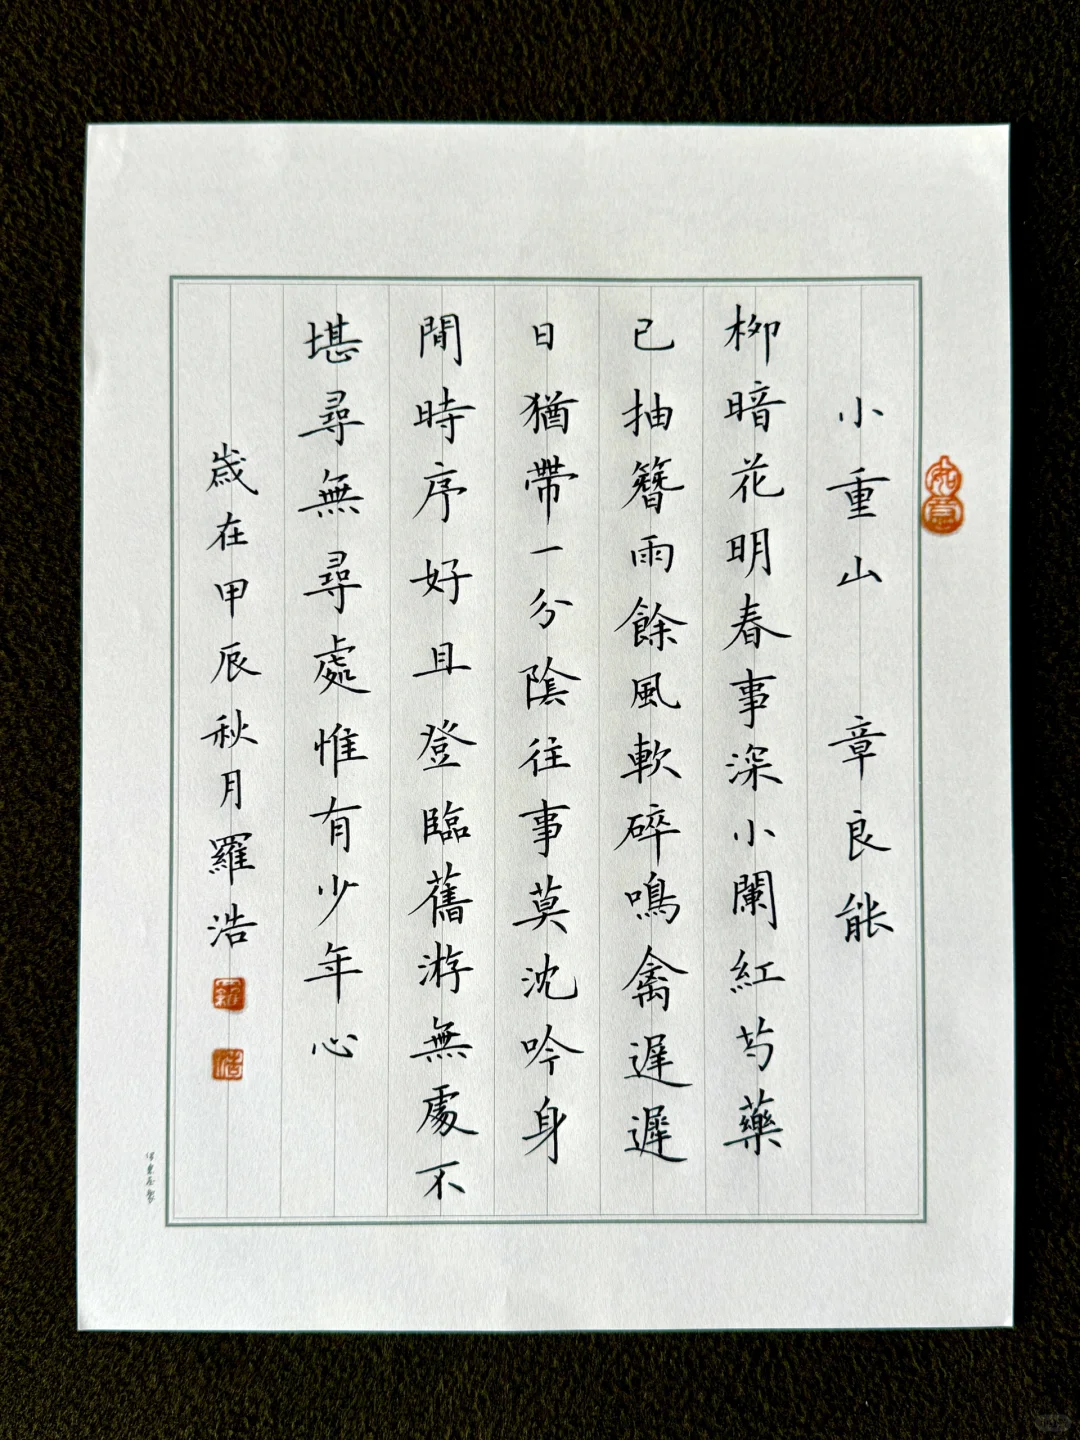 小重山 章良能
柳暗花明春事深小闌紅芍藥
已抽簪雨餘風軟碎鳴禽遲遲
日猶帶一分陰往事莫沈吟身
閒時序好且登臨舊游無處不
堪尋無尋處惟有少年心
歲在甲辰秋月羅浩
如意